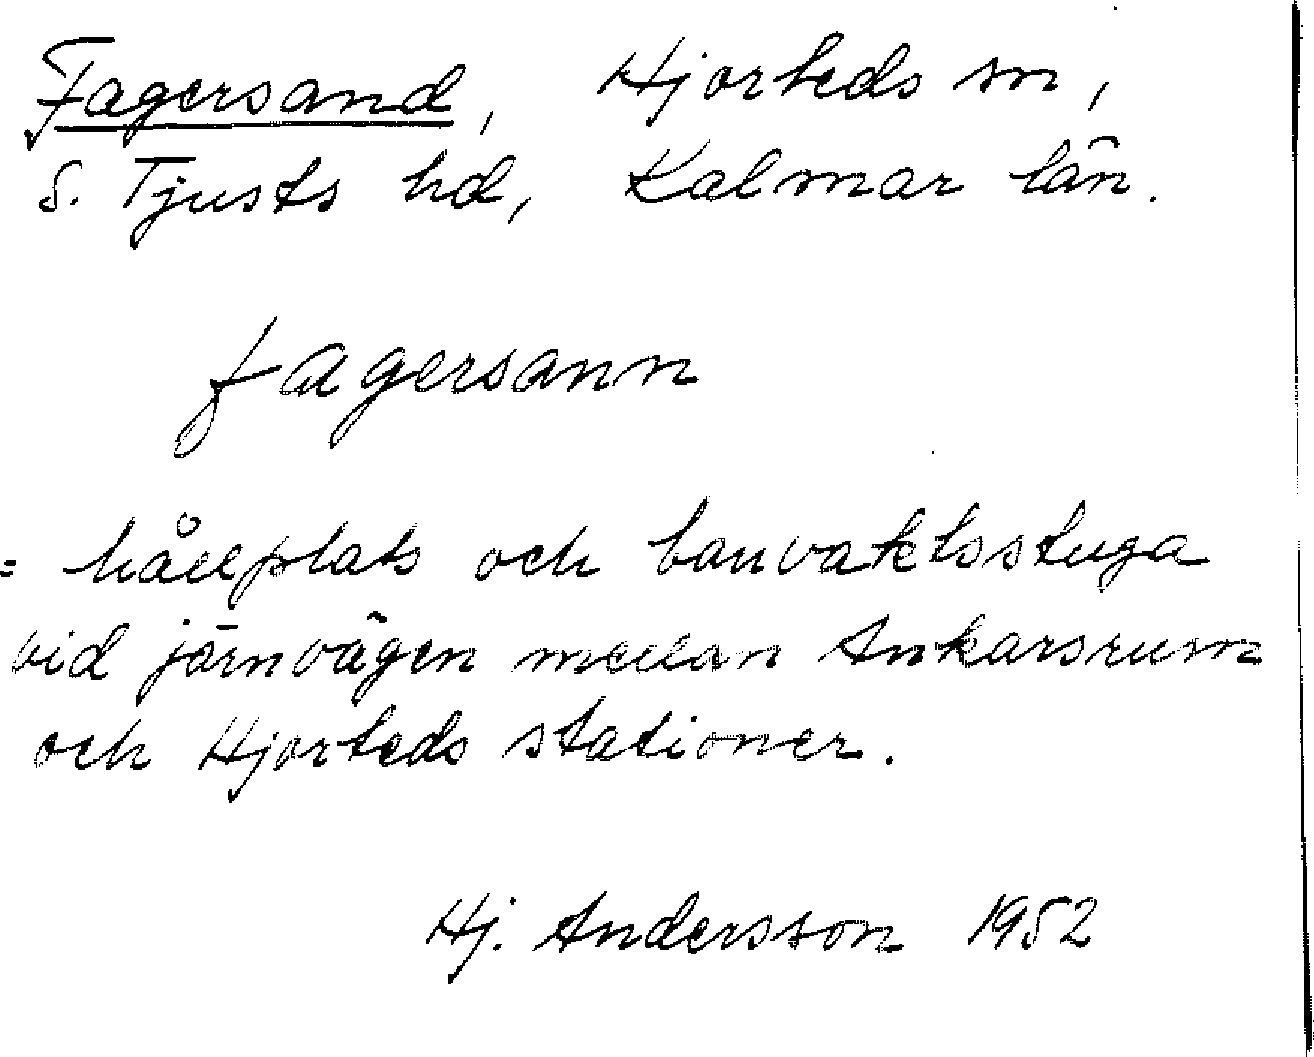 Fagersand, Hjorteds sn,
S. Tjusts hd, Kalmar län.
fagersann
= hållplats och banvaktsstuga
vid järnvägen mellan Ankarsrum
och Hjorteds stationer.
Hj. Andersson 1952